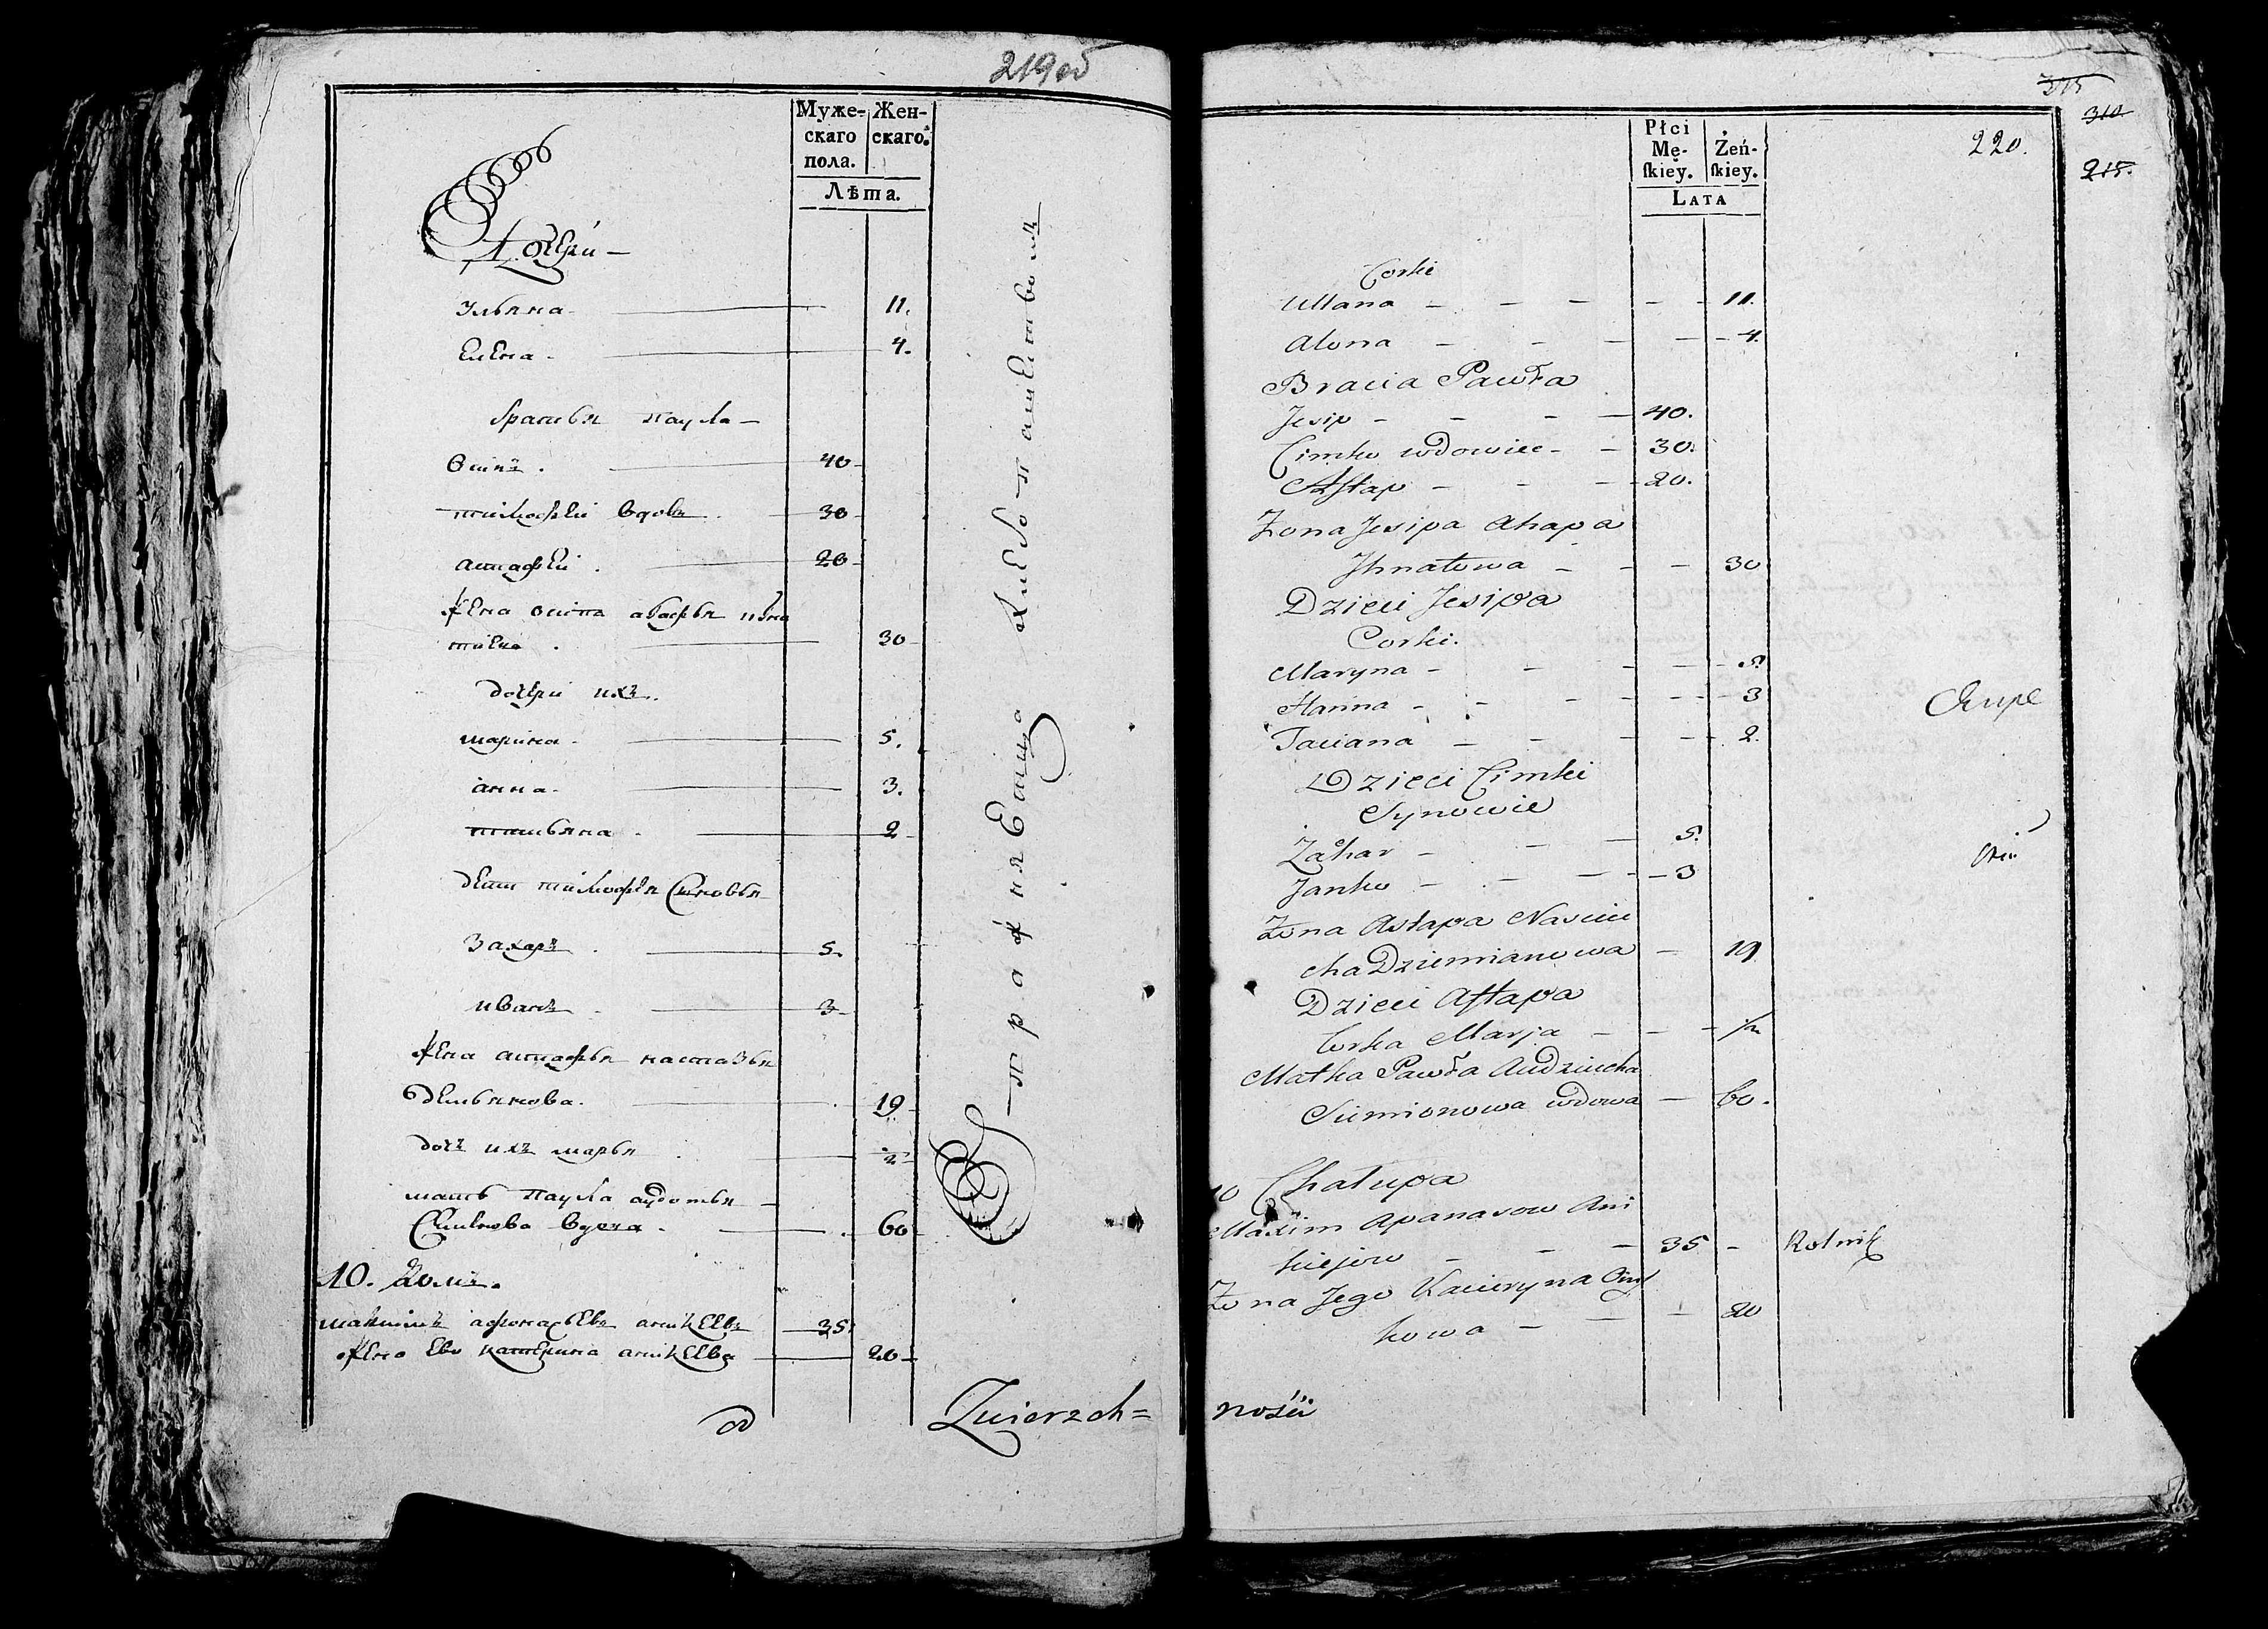 219 об
Муже-
скаго
пола.
Жен-
скаго.
Лѣта.
Дочери —
Ульяна 11.
Елена 4.
братья Паула —
Осипъ 40
тимофей вдовъ 30
астафей 20
жена осипа агафья игна
тиева 30
дочери ихъ.
марина 5.
анна 3.
татьяна 2
дети тимофея Сыновья
Захаръ 5.
иванъ 3
жена астафья настазья
демьянова. 19
дочь ихъ марья ½
мать Паула аудотья
Семенова вдова 60
10. Домъ.
максимъ афонасьевъ аникеевъ 35
жена Ево катерина аникеева 20
упражняетца хлебопашествомъ
Zwierzch=
315
310
215.
220.
Płci
Mę-
ſkiey.
Żeń-
ſkiey.
LATA
Corki
Ullana — — — — 11.
Alona — — — — 4.
Bracia Pawła
Jesip — — — 40.
Cimko wdowiec — — 30.
Aſtap — — — 20.
Zona Jesipa Ahapa
Ihnatowa — — — 30
Dzieci Jesipa
Corki.
Maryna — — — — 5.
Hanna — — — — 3
Taciana — — — — 2.
Dzieci Cimki
Synowie
Zachar — — — 5.
Janko — — — 3
Zona Astapa Nascie
cha Dziemianowa — 19
Dzieci Aſtapa
Corka Marja — — — ½
Matka Pawła Audziucha
Siemionowa wdowa — 60.
10 Chałupa
Maxim Apanasow Ani
kiejow — — — 35 — Rolnik
Zona Jego Kacieryna
kowa — — — 20
ności